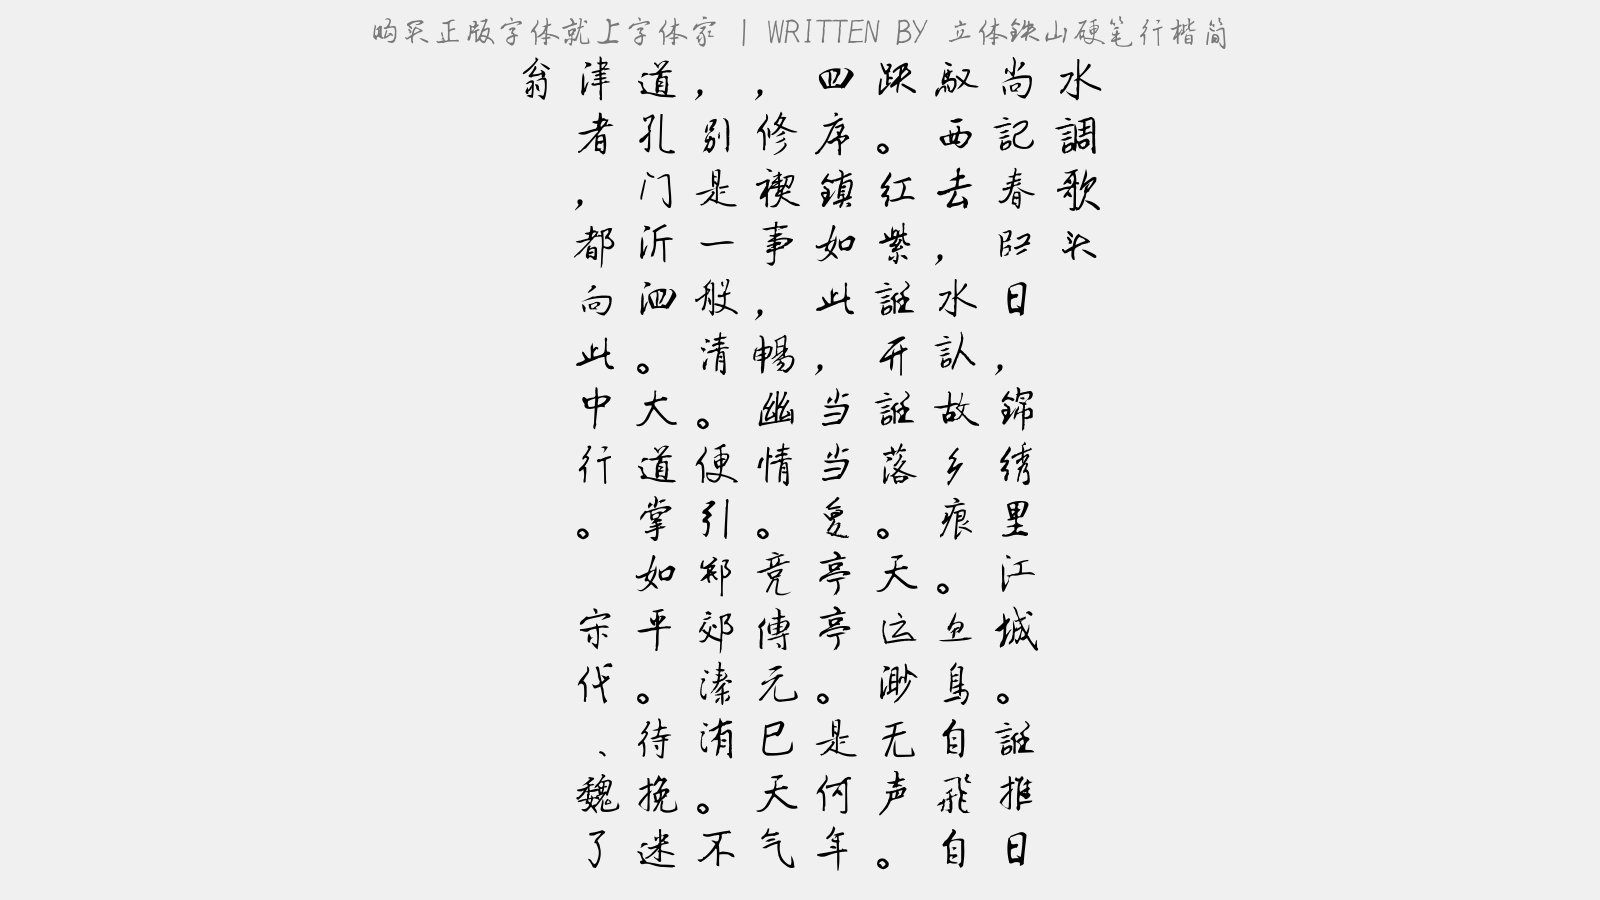 购买正版字体就上字体家 | WRITTEN BY 立体铁山硬笔行楷简
水調歌头
尚記春归日，錦绣里江城。誰推日
馭西去，水認故乡痕。鱼鳥自飛自
跃。红紫誰开誰落。天运渺无声。
四序鎮如此，当当复亭亭。是何年
，修禊事，暢幽情。竞傳元巳天气
，別是一般清。便引郑郊溱洧。不
道孔门沂泗。大道掌如平。待挽迷
津者，都向此中行。 宋代、魏了
翁